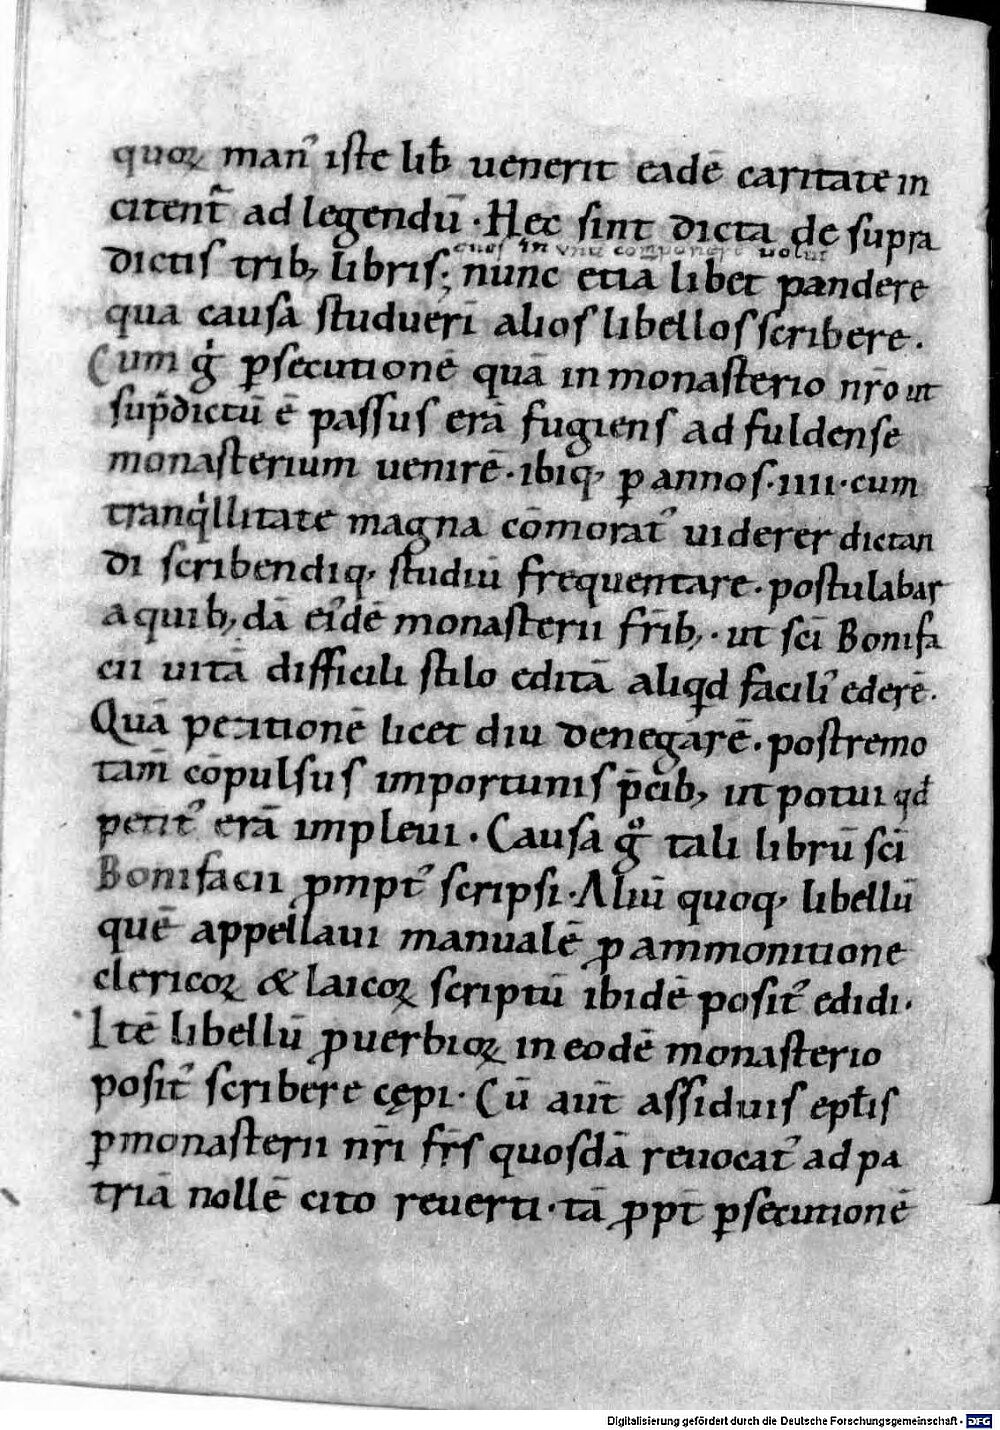 quoꝝ man᾽ iste lib̄ uenerit eadē caritate in
citent᷑ ad legendū · Hec sint dicta de supra
quos in unū componere uolui
dictis trib; libris; nunc etia libet pandere
qua causa studueri᷑ alios libellos scribere.
Cum g̊ ꝑsecutionē quā in monasterio nr̄o ut
sup̄dictū ē passus erā fugiens ad fuldense
monasterium uenirē. ibiq; ꝑ annos · iiii · cum
tranq̇llitate magna cōmorat᾽ uiderer dictan
di scribendiq; studiū frequentare. postulabar
a quib;dā ei᾽dē monasterii fr̄ib; · ut sc̄i Bonifa
cii uitā difficili stilo editā aliqd facili᾽ ederē.
Quā petitionē licet diu denegarē. postremo
tam̄ cōpulsus importunis p̄cib; ut potui qđ
petit᾽ erā impleui · Causa g̊ tali librū sc̄i
Bonifacii ꝓmpt᾽ scripsi · Aliū quoq; libellū
quē appellaui manualē ꝓ ammonitione
clericoꝝ & laicoꝝ scriptū ibidē posit᾽ edidi ·
Itē libellū ꝓuerbioꝝ in eodē monasterio
posit᾽ scribere cępi · Cū aūt assiduis epl̄is
ꝑ monasterii nr̄i fr̄s quosdā reuocat᾽ ad pa
triā nollē cito reuerti · tā ꝓpt̄ ꝑsecutionē
Digitalisierung gefördert durch die Deutsche Forschungsgemeinschaft - DFG